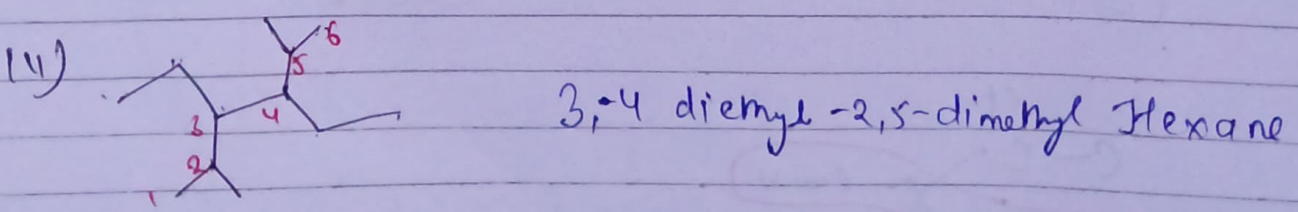 (11)
6
5
3
4
2
1
3,-4 diethyl -2,5-dimethyl Hexane